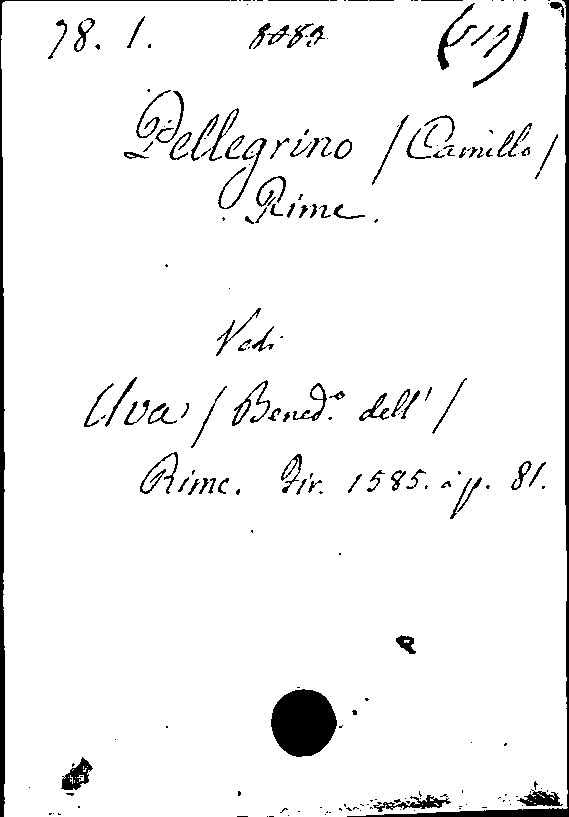 78. 1.
Pellegrino / Camillo /
Rime.
Vedi
Uva / Bened.º dell' /
Rime. Fir. 1585. à p. 81.